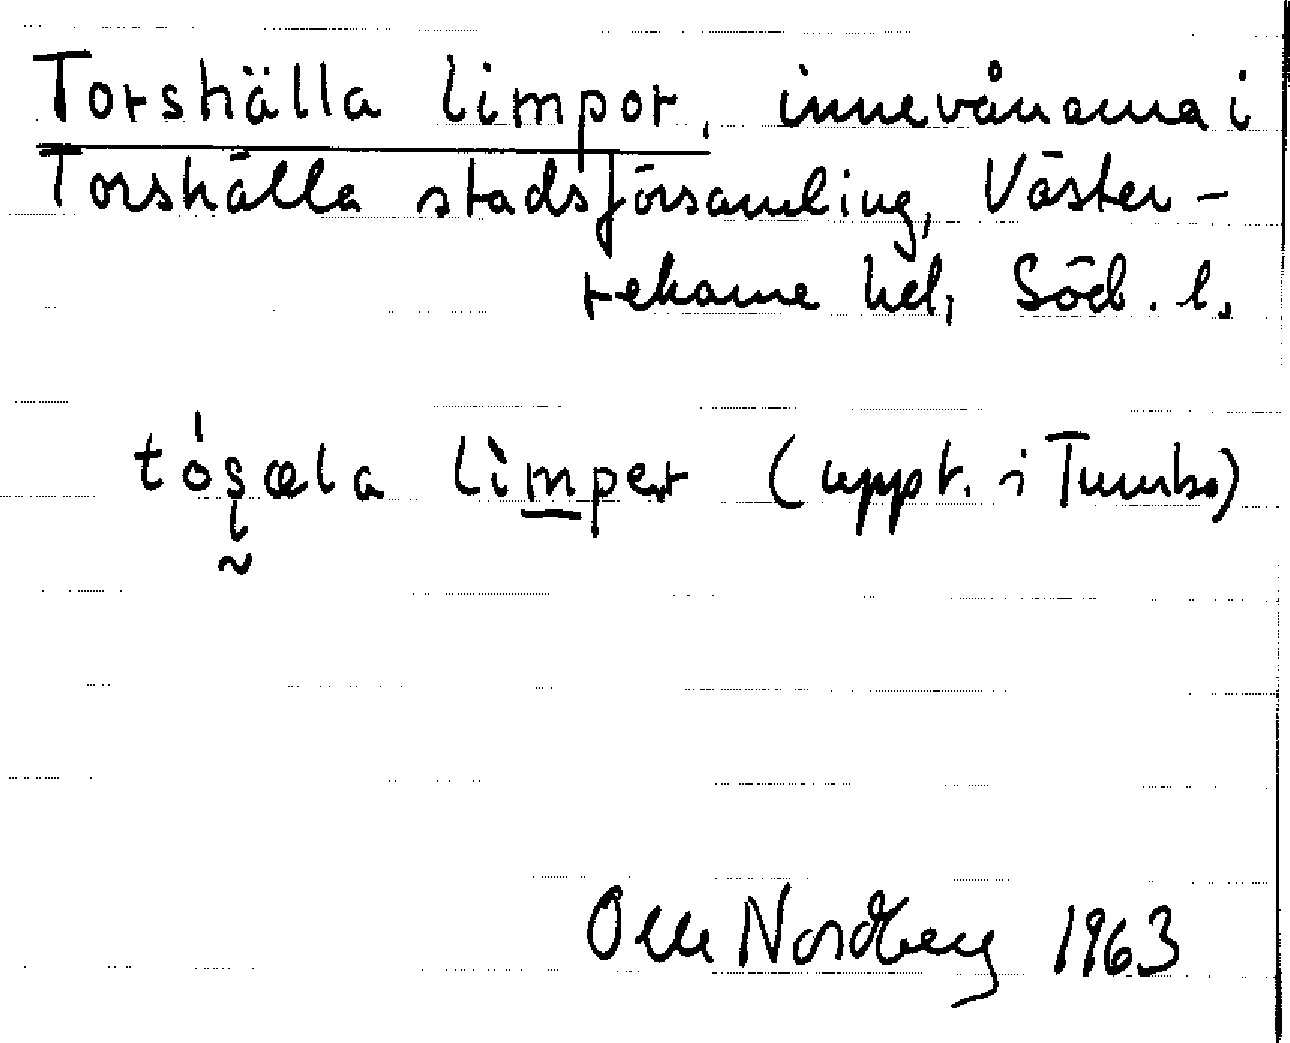 Torshälla limpor, innevånarna i
Torshälla stadsförsamling, Väster-
rekarne hd, Söd. l.
tó̀ʂæla lìmper (uppt. i Tumbo)
Olle Nordberg 1963